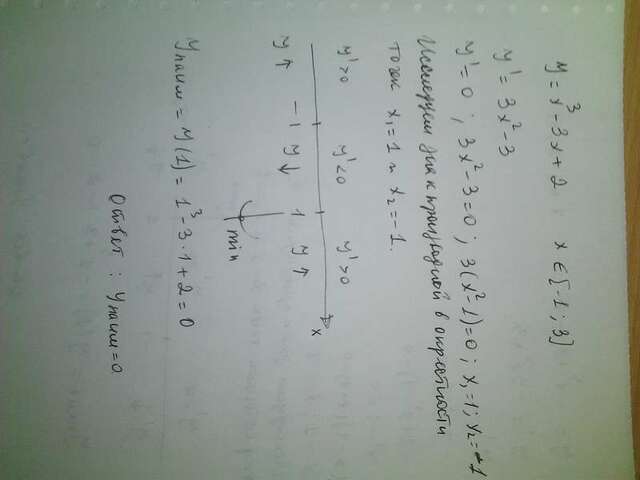 y = x³ - 3x + 2 x ∈ [-1; 3]
y' = 3x² - 3
y' = 0 ; 3x² - 3 = 0 ; 3(x² - 1) = 0 ; x₁ = 1 ; x₂ = -1
Исследуем знак производной в окрестности
точек x₁ = 1 и x₂ = -1.
y' > 0 y' < 0 y' > 0
x
y ↑ -1 y ↓ 1 y ↑
min
yнаим = y(1) = 1³ - 3·1 + 2 = 0
Ответ : yнаим = 0